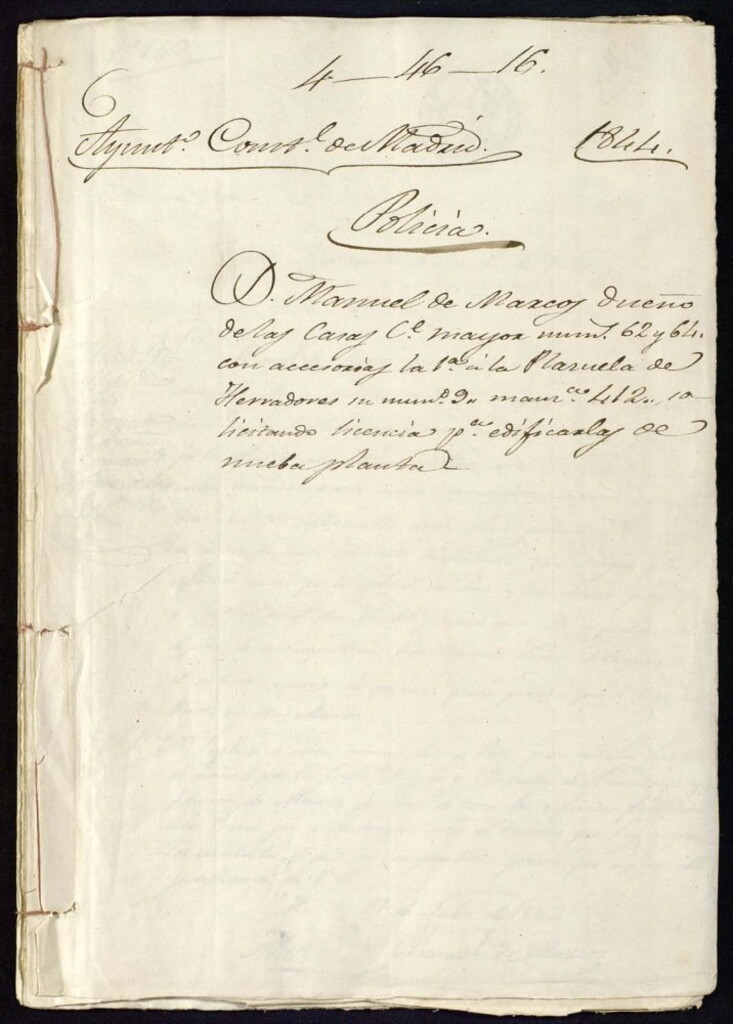 4 — 46 — 16.
Ayunt.º Const.l de Madrid. 1844.
Policia.
D. Manuel de Marcos dueño
de las Casas C.e mayor num.s 62 y 64.
con accesorias la 1.a á la Plazuela de
Herradores su num.º 9 manz.na 412, so-
licitando licencia p.a edificarlas de
nueba planta